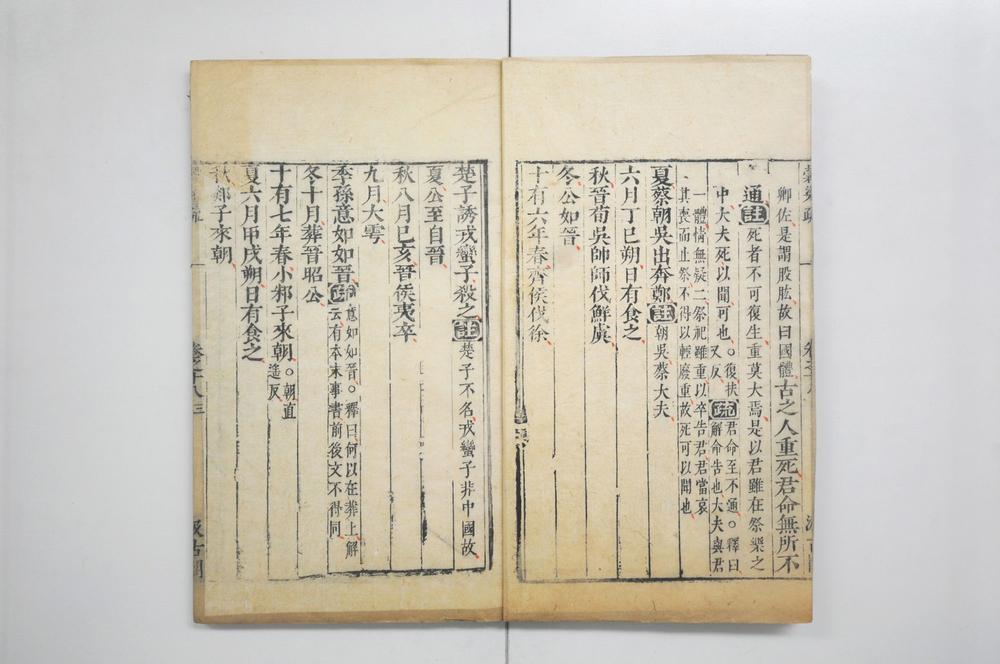 穀梁疏
卿佐是謂股肱故曰國體古之人重死君命無所不
通註死者不可復生重莫大焉是以君雖在祭樂之
中大夫死以聞可也○復扶又反疏君命至不通○釋曰解命告也大夫與君
一體情無疑二祭祀雖重以卒告君君當哀
其喪而止祭不得以輕廢重故死可以聞也
夏蔡朝吳出奔鄭註朝吳蔡大夫
六月丁巳朔日有食之
秋晉荀吳帥師伐鮮虞
冬公如晉
十有六年春齊侯伐徐
楚子誘戎蠻子殺之註楚子不名戎蠻子非中國故
夏公至自晉
秋八月己亥晉侯夷卒
九月大雩
季孫意如如晉疏意如如晉○釋曰何以在葬上解云有本末事書前後文不得同
冬十月葬晉昭公
十有七年春小邾子來朝○朝直遥反
夏六月甲戌朔日有食之
秋郯子來朝
卷之十八
三
汲古閣